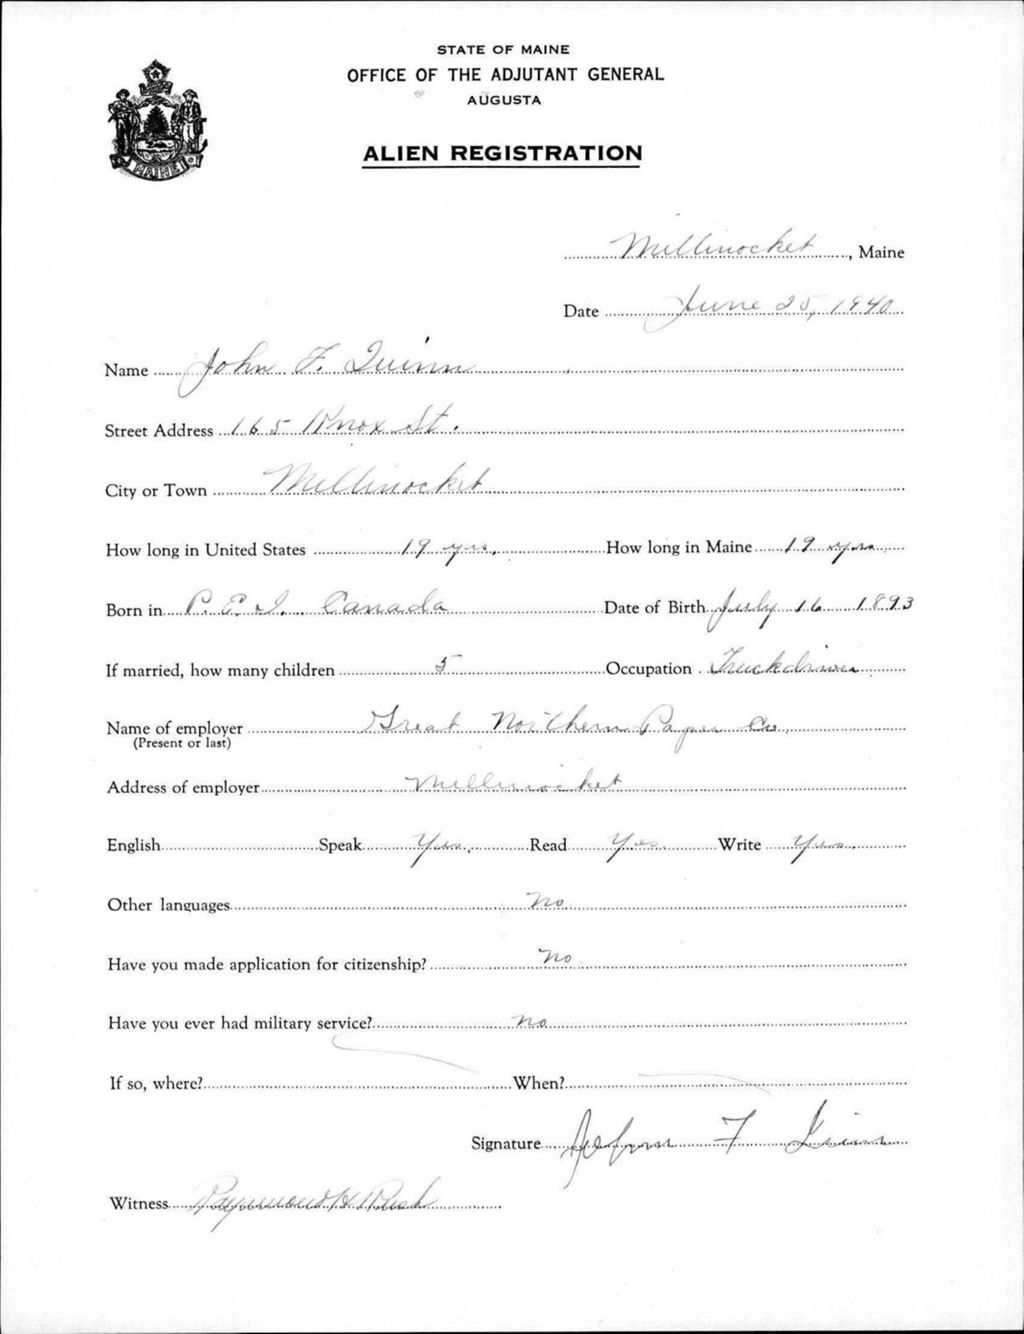 STATE OF MAINE
OFFICE OF THE ADJUTANT GENERAL
AUGUSTA
ALIEN REGISTRATION
MAINE
Millinocket, Maine
Date June 25, 1940
Name John F. Quinn
Street Address 165 Knox St.
City or Town Millinocket
How long in United States 19 yrs. How long in Maine 19 yrs.
Born in P. E. I. Canada Date of Birth July 16 1893
If married, how many children 5 Occupation Truckdriver
Name of employer Great Northern Paper Co.
(Present or last)
Address of employer Millinocket
English Speak Yes. Read Yes. Write Yes.
Other languages No
Have you made application for citizenship? No
Have you ever had military service? No
If so, where? When?
Signature John F Quinn
Witness Raymond H Rush